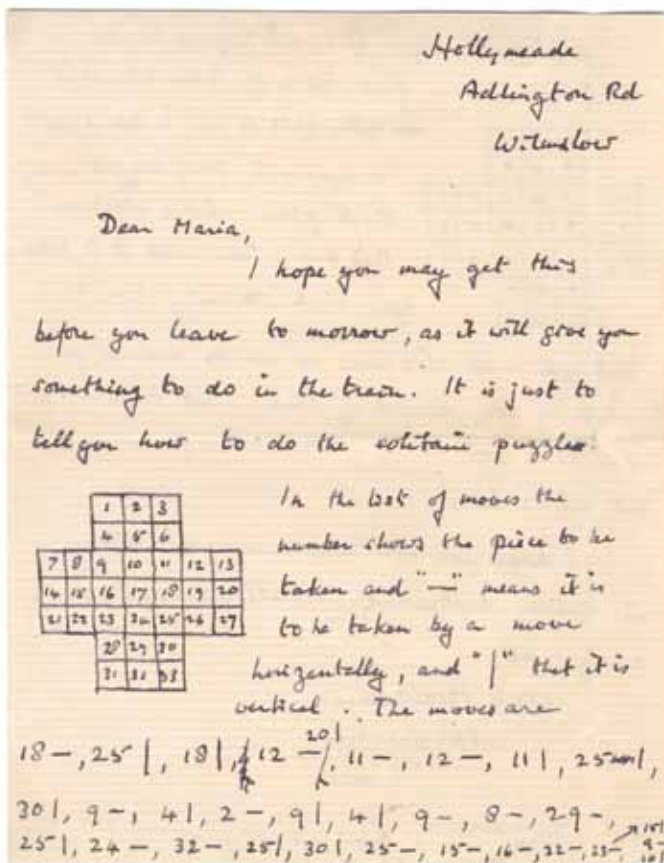 Hollymeade
Adlington Rd
Wilmslow
Dear Maria,
I hope you may get this
before you leave to morrow, as it will give you
something to do in the train. It is just to
tell you how to do the solitaire puzzle.
1 2 3
4 5 6
7 8 9 10 11 12 13
14 15 16 17 18 19 20
21 22 23 24 25 26 27
28 29 30
31 32 33
In the list of moves the
number shows the piece to be
taken and "—" means it is
to be taken by a move
horizontally, and "|" that it is
vertical. The moves are
20|
18 –, 25 |, 18 |, 12 –, 11 –, 12 –, 11 |, 25 |,
30 |, 9 –, 4 |, 2 –, 9 |, 4 |, 9 –, 8 –, 29 –,
25 |, 24 –, 32 –, 25 |, 30 |, 25 –, 15 –, 16 –, 22 –, 23 –, 15 |
9 –